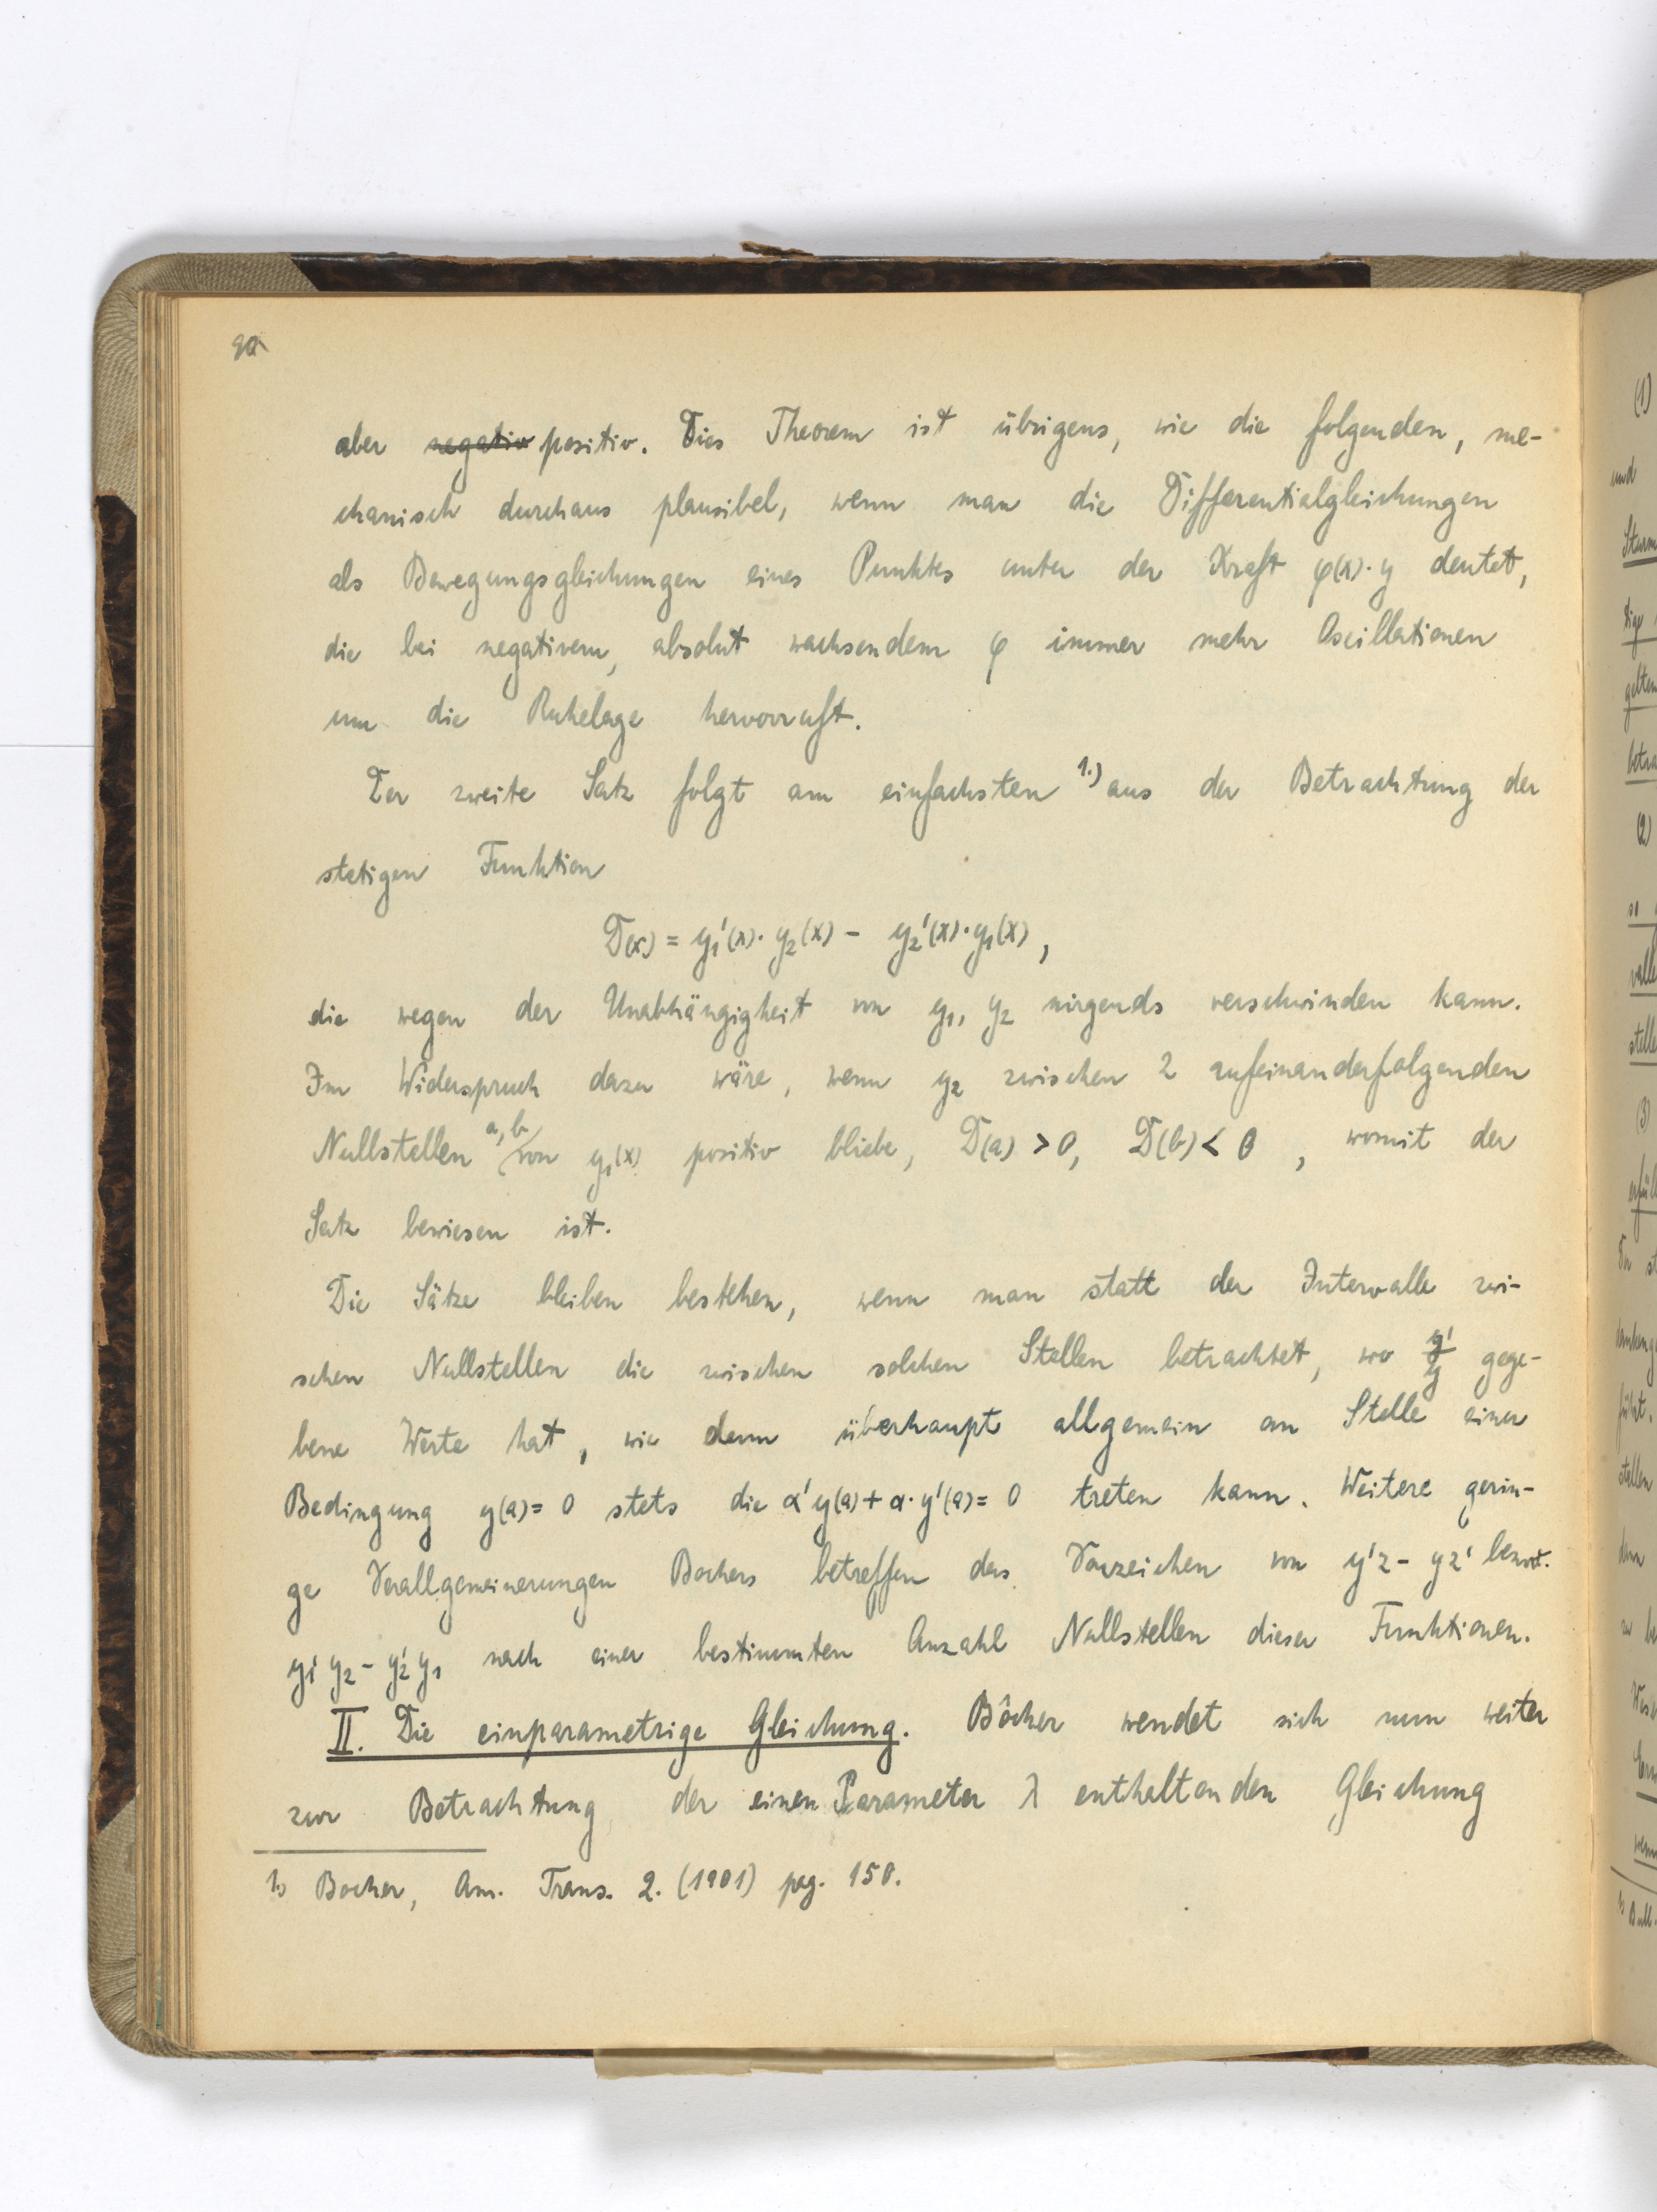 90
aber negativ positiv. Dies Theorem ist übrigens, wie die folgenden, me-
chanisch durchaus plausibel, wenn man die Differentialgleichungen
als Bewegungsgleichungen eines Punktes unter der Kraft φ(x)·y deutet,
die bei negativem, absolut wachsendem φ immer mehr Oscillationen
um die Ruhelage hervorruft.
Der zweite Satz folgt am einfachsten 1.) aus der Betrachtung der
stetigen Funktion
D(x) = y₁'(x)·y₂(x) - y₂'(x)·y₁(x),
die wegen der Unabhängigkeit von y₁, y₂ nirgends verschwinden kann.
Im Widerspruch dazu wäre, wenn y₂ zwischen 2 aufeinanderfolgenden
Nullstellen a, b von y₁(x) positiv bliebe, D(a) > 0, D(b) < 0, womit der
Satz bewiesen ist.
Die Sätze bleiben bestehen, wenn man statt der Intervalle zwi-
schen Nullstellen die zwischen solchen Stellen betrachtet, wo y'/y gege-
bene Werte hat, wie denn überhaupt allgemein an Stelle einer
Bedingung y(a) = 0 stets die α'y(a) + α·y'(a) = 0 treten kann. Weitere gerin-
ge Verallgemeinerungen Bochers betreffen das Vorzeichen von y'z - yz' bezw.
y₁'y₂ - y₂'y₁ nach einer bestimmten Anzahl Nullstellen dieser Funktionen.
II. Die einparametrige Gleichung. Bôcher wendet sich nun weiter
zur Betrachtung der einen Parameter λ enthaltenden Gleichung
1) Bocher, Am. Trans. 2. (1901) pag. 150.
(1)
und
(2)
stelle
(3)
stellen